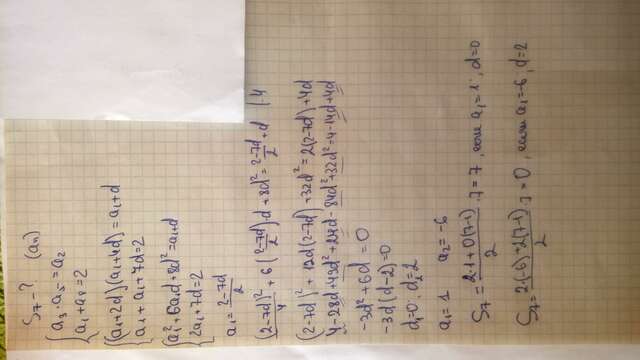 S₇ - ? (aₙ)
{ a₃ · a₅ = a₂
a₁ + a₈ = 2
{ (a₁+2d)(a₁+4d) = a₁+d
a₁ + a₁ + 7d = 2
{ a₁² + 6a₁d + 8d² = a₁+d
2a₁ + 7d = 2
a₁ = (2-7d)/2
(2-7d)²/4 + 6((2-7d)/2)·d + 8d² = (2-7d)/2 + d | ·4
(2-7d)² + 12d(2-7d) + 32d² = 2(2-7d) + 4d
4 - 28d + 49d² + 24d - 84d² + 32d² = 4 - 14d + 4d
-3d² + 6d = 0
-3d(d-2) = 0
d₁ = 0; d₂ = 2
a₁ = 1 a₂ = -6
S₇ = (2·1+0(7-1))/2 · 7 = 7, если a₁ = 1; d = 0
S₇ = (2·(-6)+2(7-1))/2 · 7 = 0, если a₁ = -6; d = 2